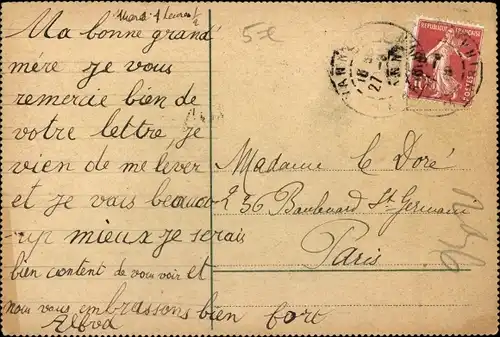 Mardi 4 heures 1/2
Ma bonne grand
mére je vous
remercie bien de
votre lettre je
vien de me lever
et je vais beauco
up mieux je serais
bien content de vous voir et
nous vous embrassons bien fort
Alfred
5€
Madame C Doré
236 Boulevard St Germain
Paris